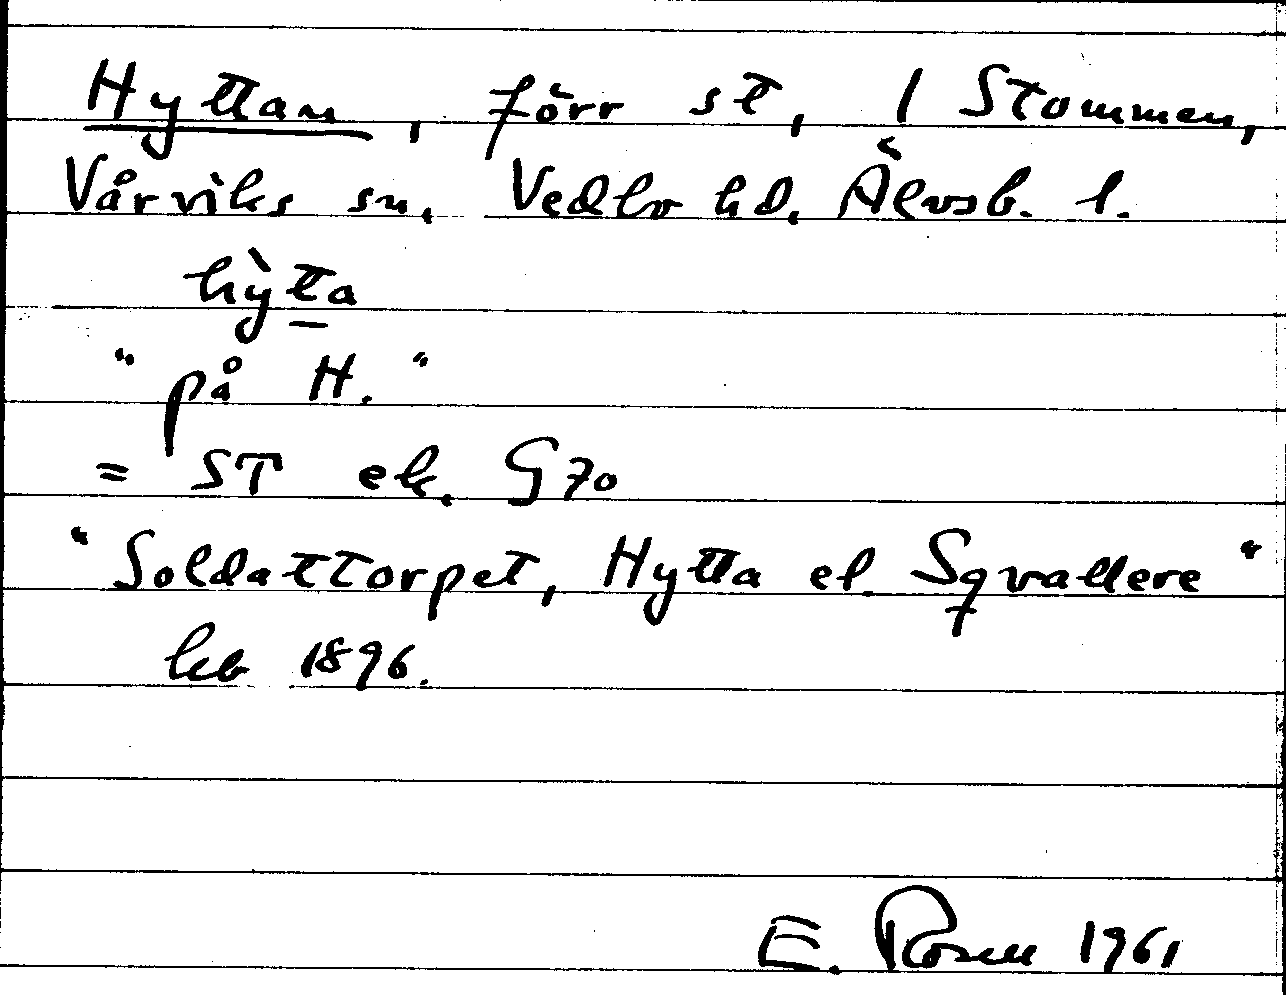 Hyttan, förr st, 1 Stommen,
Vårviks sn, Vedbo hd, Älvsb. l.
hỳta
"på H."
= ST ek. G 70
"Soldattorpet, Hytta el. Sqvallere"
lcb 1896.
E. Rosell 1961